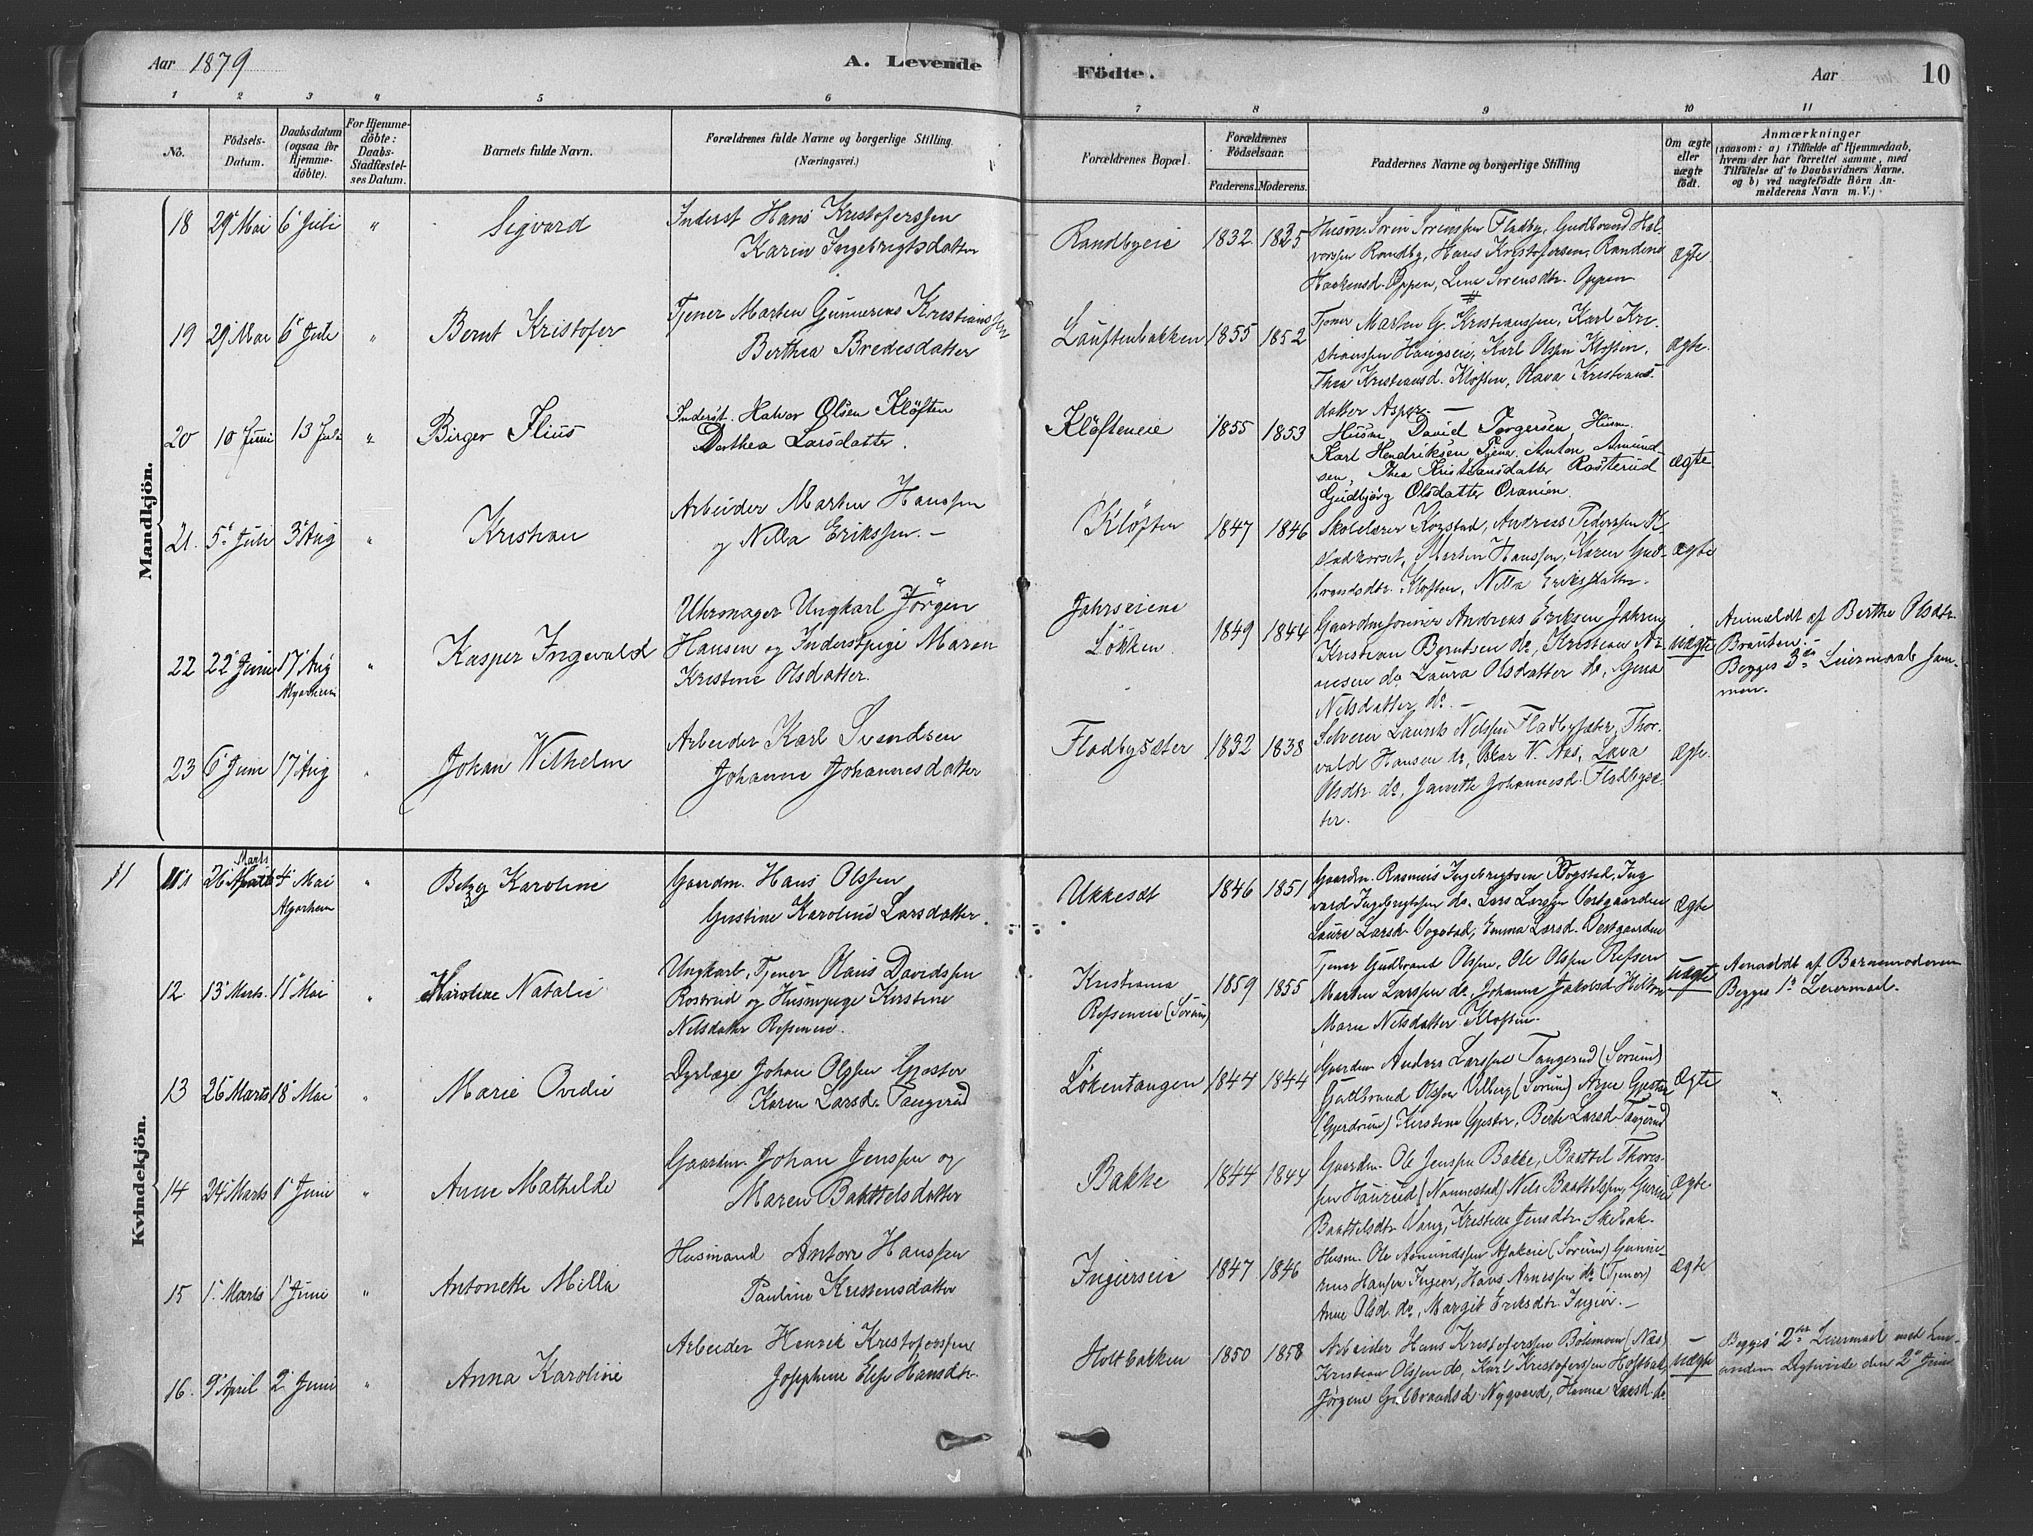 Aar 1879
A. Levende
Födte.
Aar
10
1 2 3 4 5 6 7 8 9 10 11
No.
Födsels-
Datum.
Daabsdatum
(ogsaa for
Hjemme-
döbte).
For Hjemme-
döbte:
Daabs-
Stadfæstel-
ses Datum.
Barnets fulde Navn.
Forældrenes fulde Navne og borgerlige Stilling.
(Næringsvei.)
Forældrenes Bopæl.
Forældrenes
Födselsaar.
Faderens. Moderens.
Faddernes Navne og borgerlige Stilling
Om ægte
eller
uægte
födt.
Anmærkninger
(saasom: a) i Tilfælde af Hjemmedaab,
hvem der har forrettet samme, med
Tilföielse af to Daabsvidners Navne.
og b) ved uægtefödte Börn An-
melderens Navn m. V.)
Mandkjön.
18 29 Mai 6 Juli " Sigvard
Inderst Hans Kristoferssen
Karen Ingebrigtsdatter
Randbyeie 1832 1835
Husm Sören Sörenssen Fladby, Gudbrand Hal-
vorsen Randby, Hans Kristofersen, Randine
Haakensd. Oppen, Line Sorensdtr. Oppen
ægte
19 29 Mai 6 Juli " Bernt Kristofer
Tjener Marten Gunnerius Kristianssen
Berthea Bredesdatter
Lauftenbakken 1855 1852
Tjener Marten G. Kristianssen, Karl Kri-
stianssen Haugseie, Karl Olsen Kloften,
Thea Kristiansd. Kloften, Olava Kristians-
datter Asper. —
ægte.
20 10 Juni 13 Juli " Birger Ilius
Inderst. Halvor Olsen Kløften
Dorthea Larsdatter.
Kløfteneie 1855 1853
Husm. David Torgersen, Husm.
Karl Hendriksen, Tjener Anton Amund-
sen, Thea Kristiansdatter Rosterud
Gudbjørg Olsdatter Oranien.
ægte
21. 5 Juli 3 Aug " Kristian
Arbeider Marten Hanssen
og Nilla Erikssen. —
Kløften 1847 1846
Skolelærer Kogstad, Andreas Pederssen
Marten Hanssen, Karen Gud-
brandsdtr. Kloften, Nilla Eriksdatter.
ægte
22 22 Juni 17 Aug " Kasper Ingevald
Algarheim
Uhrmager Ungkarl Jørgen
Hansen og Inderstpige Maren
Kristine Olsdatter.
Løkken 1849 1844
Andreas Eriksen
Kristian Berntsen do, Kristian
Laura Olsdatter do, Gina
Nilsdatter do. —
uægte
Anmeldt af Berthe Olsdtr
Braaten. —
Begges 3die Leiermaal sam-
men.
23 6 Juni 17 Aug " Johan Vilhelm
Arbeider Karl Svendsen
Johanne Johannesdatter
Fladbysæter 1832 1838
Selveier Laurits Nilssen Fladbysæter, Thor-
vald Hansen do, Oskar V. Næs, Lava
Olsdtr. do, Janethe Johannesd. Fladbysæ-
ter.
ægte.
Kvindekjön.
11 11 26 Marts 4 Mai " Betzy Karoline
Algarheim
Gaardm. Hans Olssen
Gustine Karoline Larsdatter.
Ukkestt 1846 1851
Gaardm. Rasmus Ingebrigtsen Kogstad, Ing
vard Ingebrigtssen do. Lars Larssen Vestgaarden
Laura Larsd. Vogstad, Emma Larsd. Vestgaarden
ægte
12 13 Marts. 11 Mai " Karoline Natalie
Ungkarl, Tjener Olaus Davidssen
Rostrud og Husmpige Kirstine
Nilsdatter Refseneie.
Kristiania
Refseneie (Sörum) 1859 1855
Tjener Gudbrand Olssen, Ole Olssen Refsen
Marten Larssen do, Johanne Jakobsd
Marie Nilsdatter Kloften.
uægte
Anmeldt af Barnemoderen
Begges 1ste Leiermaal.
13 26 Marts 18 Mai " Marie Ovidie
Dyrlæge Johan Olssen Gjester
Karen Larsd. Tangerud
Lökentangen 1844 1844
Gaardm Anders Larssen Tangerud (Sorum)
Guldbrand Olssen Ulberg (Sorum) Arne Gjester
(Gjerdrum) Kirstine Gjester, Berte Larsd Tangerud
ægte
14 24 Marts 1 Juni " Anne Mathilde
Gaardm Johan Jenssen og
Maren Baattelsdatter
Bakke 1844 1844
Gaardm. Ole Jenssen Bakke, Baattel Thores-
sen Haurud (Nannestad) Nils Baattelssen, Gurine
Baattelsdtr Vang, Kristine Jensdtr Skebak.
ægte
15 1 Marts 1 Juni " Antonette Milla
Husmand Anton Hanssen
Pauline Kristensdatter
Ingierseie 1847 1846
Husm. Ole Asmundssen (Sorum) Gunne-
rius Hansen Ingier, Hans Arnessen do (Tjener)
Anne Olsd. do, Margit Eriksdtr Ingier. —
ægte
16. 9 April 2 Juni " Anna Karoline
Arbeider Henrik Kristoferssen
Josephine Elise Hansdtr.
Holtbakken 1850 1858
Arbeider Hans Kristoferssen (Næs)
Kristian Olssen do, Karl Kristoferssen
Jørgine Gulbrandsd Nygaard, Hanna Larsd do.
uægte
Begges 2det Leiermaal med hin-
anden. Ægteviede den 2den Juni